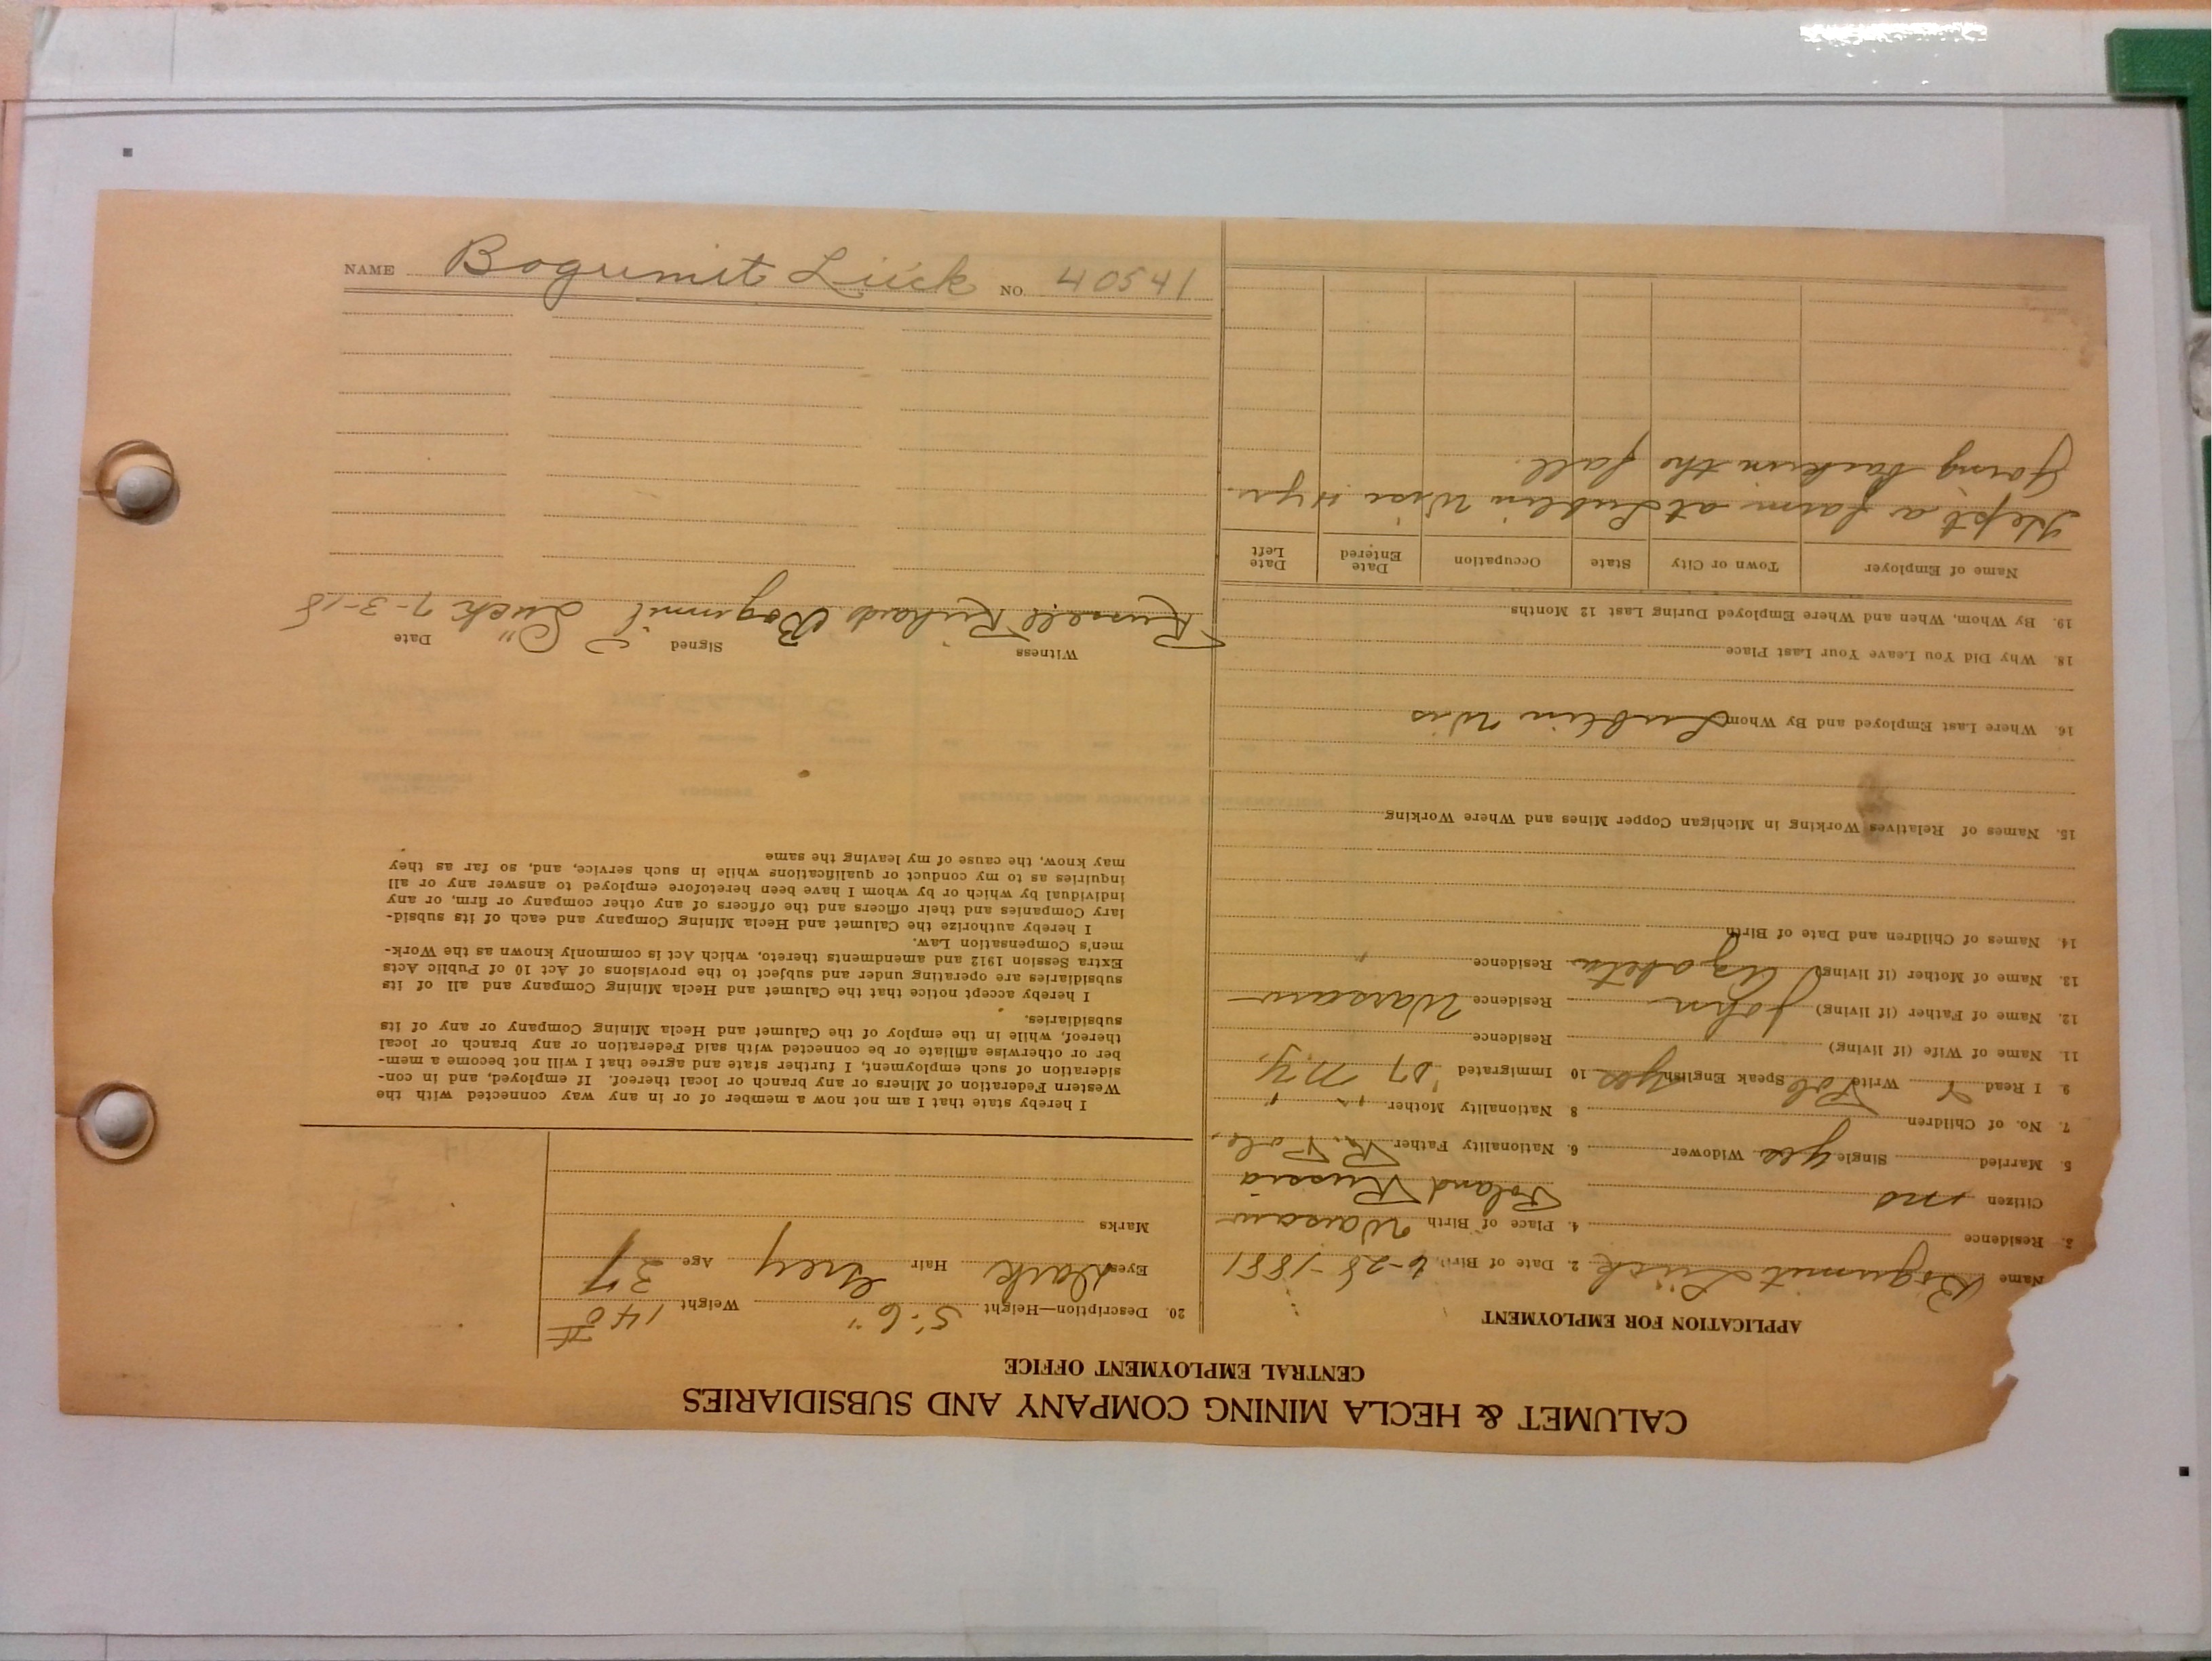 NAME Bogumit Lück NO. 40541
CALUMET & HECLA MINING COMPANY AND SUBSIDIARIES
CENTRAL EMPLOYMENT OFFICE
APPLICATION FOR EMPLOYMENT
Name Bogumit Lück 2. Date of Birth 6-28-1881
3. Residence 4. Place of Birth Warsaw
Citizen no Poland Russia
5. Married Single yes Widower 6. Nationality Father R. Pole
7. No. of Children 8. Nationality Mother " "
9. I Read Y Write Pole Speak English yes 10 Immigrated '07 N.Y.
11. Name of Wife (if living) Residence
12. Name of Father (if living) John Residence Warsaw
13. Name of Mother (if living) Residence "
14. Names of Children and Date of Birth
15. Names of Relatives Working in Michigan Copper Mines and Where Working
16. Where Last Employed and By Whom Lublin Wis
18. Why Did You Leave Your Last Place
19. By Whom, When and Where Employed During Last 12 Months
Name of Employer Town or City State Occupation Date Entered Date Left
Kept a farm at Lublin Wisc 4 yr.
Going back in the fall.
20. Description—Height 5'6" Weight 140 #
Eyes Dark Hair Grey Age 37
Marks
I hereby state that I am not now a member of or in any way connected with the
Western Federation of Miners or any branch or local thereof. If employed, and in con-
sideration of such employment, I further state and agree that I will not become a mem-
ber or otherwise affiliate or be connected with said Federation or any branch or local
thereof, while in the employ of the Calumet and Hecla Mining Company or any of its
subsidiaries.
I hereby accept notice that the Calumet and Hecla Mining Company and all of its
subsidiaries are operating under and subject to the provisions of Act 10 of Public Acts
Extra Session 1912 and amendments thereto, which Act is commonly known as the Work-
men's Compensation Law.
I hereby authorize the Calumet and Hecla Mining Company and each of its subsid-
iary Companies and their officers and the officers of any other company or firm, or any
individual by which or by whom I have been heretofore employed to answer any or all
inquiries as to my conduct or qualifications while in such service, and, so far as they
may know, the cause of my leaving the same
Witness Signed Date
Russell Richards Bogumil Lück 7-3-18